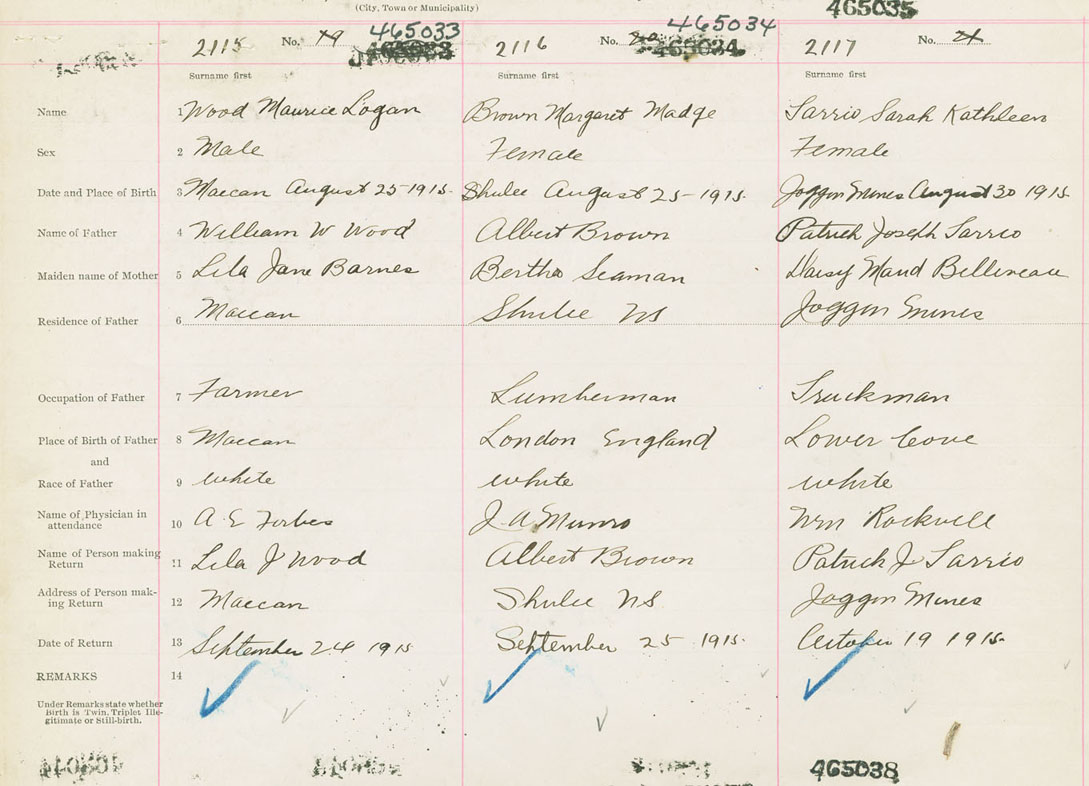 (City, Town or Municipality)
465033 465034 465035
2115 No. 19 2116 No. 2117 No. 21
465034
Surname first Surname first Surname first
Name 1 Wood Maurice Logan Brown Margaret Madge Sarrio Sarah Kathleen
Sex 2 Male Female Female
Date and Place of Birth 3 Maccan August 25-1915. Shulee August 25-1915. Joggin Mines August 30 1915
Name of Father 4 William W Wood Albert Brown Patrick Joseph Sarrio
Maiden name of Mother 5 Lila Jane Barnes Bertha Seaman Daisy Maud Belliveau
Residence of Father 6 Maccan Shulee NS Joggin Mines
Occupation of Father 7 Farmer Lumberman Truckman
Place of Birth of Father 8 Maccan London England Lower Cove
and
Race of Father 9 white white white
Name of Physician in
attendance 10 A E Forbes J A Munro Wm Rockwell
Name of Person making
Return 11 Lila J Wood Albert Brown Patrick J Sarrio
Address of Person mak-
ing Return 12 Maccan Shulee NS Joggin Mines
Date of Return 13 September 24 1915 September 25 1915. October 19 1915.
REMARKS 14
Under Remarks state whether
Birth is Twin, Triplet, Ille-
gitimate or Still-birth.
465038